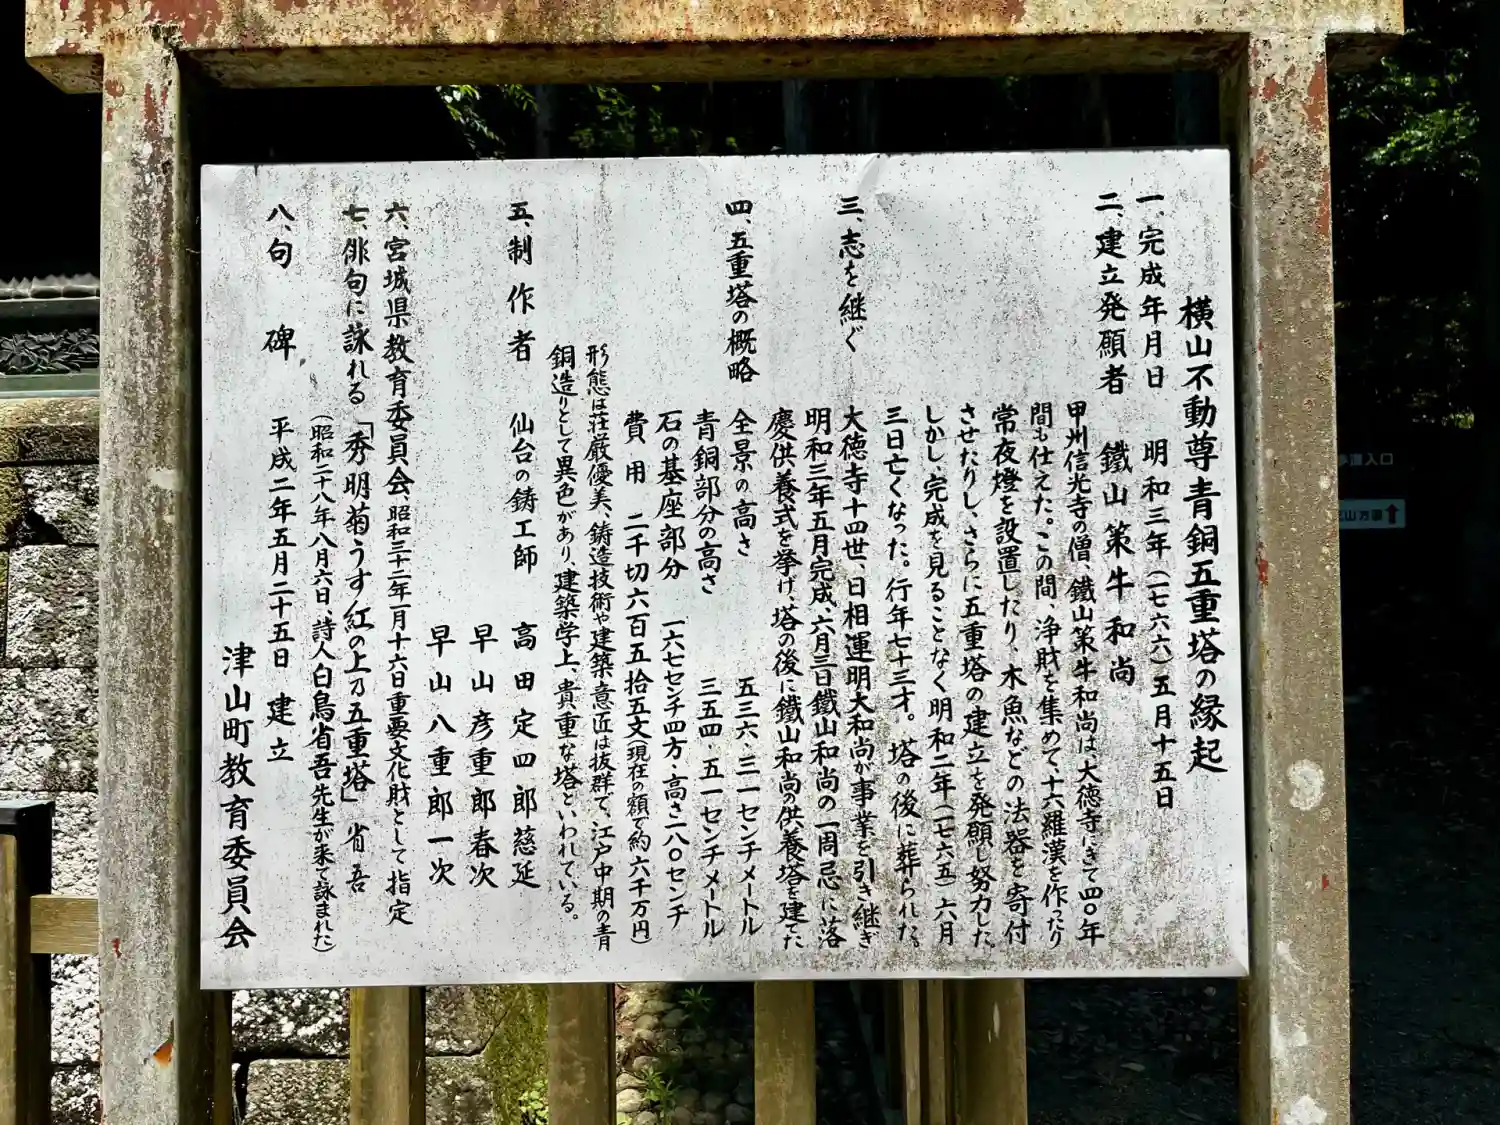 横山不動尊青銅五重塔の縁起
一、完成年月日　明和三年（一七六六）五月十五日
二、建立発願者　鐵山策牛和尚
甲州信光寺の僧、鐵山策牛和尚は、大徳寺にきて四〇年
間も仕えた。この間、浄財を集めて、十六羅漢を作ったり
常夜燈を設置したり、木魚などの法器を寄付
させたりし、さらに五重塔の建立を発願し努力した
しかし、完成を見ることなく明和二年（一七六五）六月
三日亡くなった。行年七十三才。塔の後に葬られた。
三、志を継ぐ　大徳寺十四世、日相運明大和尚が事業を引き継ぎ
明和三年五月完成、六月三日鐵山和尚の一周忌に落
慶供養式を挙げ、塔の後に鐵山和尚の供養塔を建てた
四、五重塔の概略　全景の高さ　五三六、三一センチメートル
青銅部分の高さ　三五四、五一センチメートル
石の基座部分　一六七センチ四方、高さ一八〇センチ
費用　二千切六百五拾五文（現在の額で約六千万円）
形態は荘厳優美、鋳造技術や建築意匠は抜群で、江戸中期の青
銅造りとして異色があり、建築学上、貴重な塔といわれている。
五、制作者　仙台の鋳工師　高田定四郎慈延
早山彦重郎春次
早山八重郎一次
六、宮城県教育委員会、昭和三十二年一月十六日重要文化財として指定
七、俳句に詠れる「秀明菊うす紅の上乃五重塔」　省吾
（昭和二十八年八月六日、詩人白鳥省吾先生が来て詠まれた）
八、句碑　平成二年五月二十五日　建立
津山町教育委員会
入口